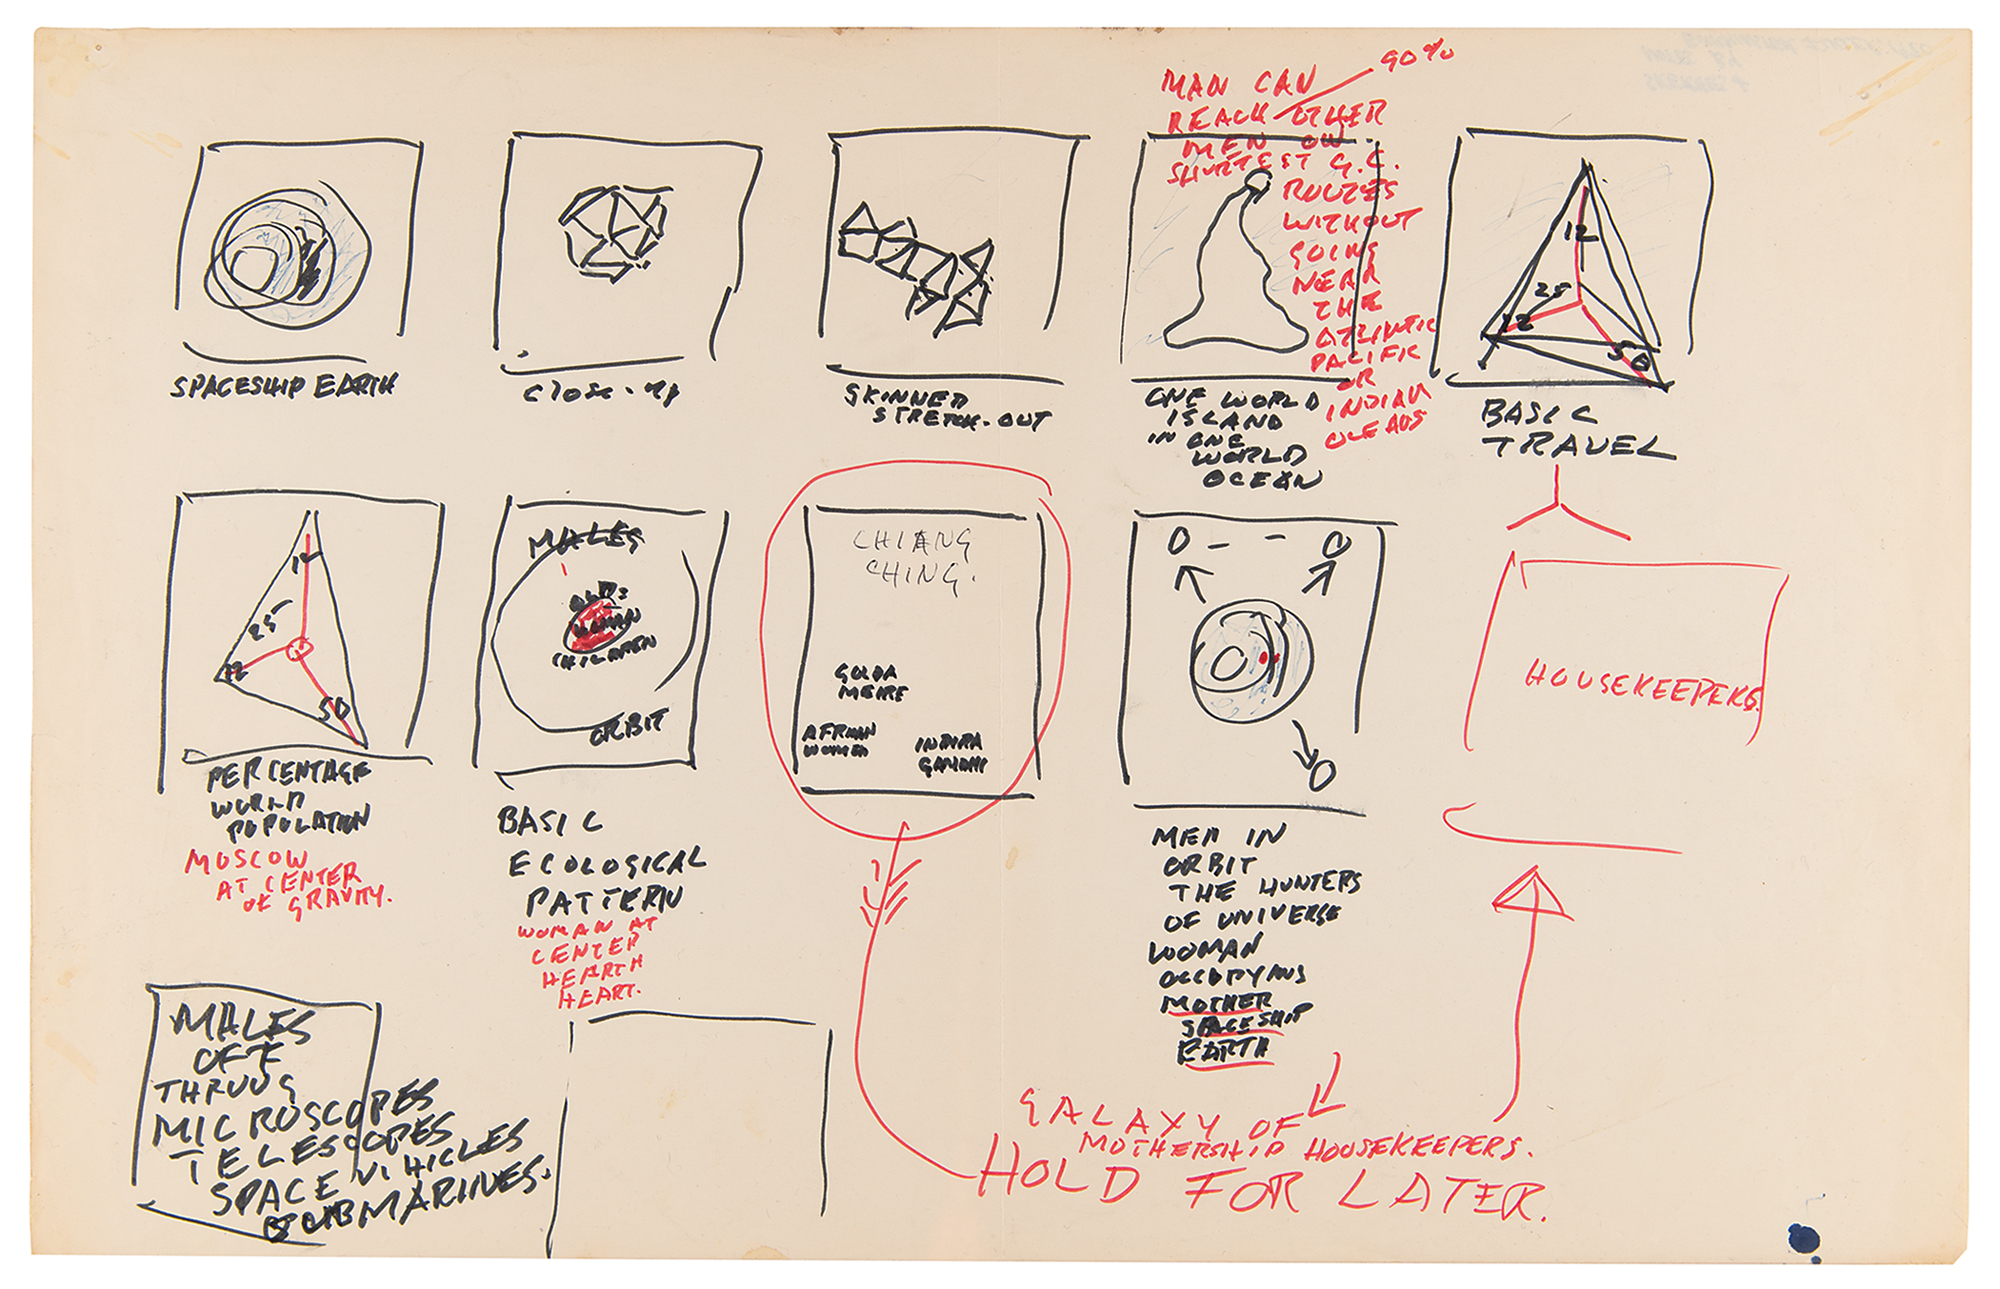 90%
MAN CAN
REACH OTHER
MEN ON
SHORTEST G.C.
ROUTES
WITHOUT
GOING
NEAR
THE
ATLINTIC
PACIFIC
OR
INDIAN
OCEANS
SPACESHIP EARTH
CLOSE-UP
SKINNED
STRETCH-OUT
ONE WORLD
ISLAND
IN ONE
WORLD
OCEAN
12
25
12
50
BASIC
TRAVEL
12
25
12
50
PERCENTAGE
WORLD
POPULATION
MOSCOW
AT CENTER
OF GRAVITY.
MALES
WOMAN
CHILDREN
ORBIT
BASIC
ECOLOGICAL
PATTERN
WOMAN AT
CENTER
HEARTH
HEART.
CHIANG
CHING.
GOLDA
MEIRE
AFRICAN
WOMEN
INDIRA
GANDHI
MEN IN
ORBIT
THE HUNTERS
OF UNIVERSE
WOMAN
OCCUPYING
MOTHER
SPACESHIP
EARTH
HOUSEKEEPERS.
MALES
OFF
THROUG
MICROSCOPES
TELESCOPES
SPACE VIHICLES
SUBMARINES.
GALAXY OF
MOTHERSHIP HOUSEKEEPERS.
HOLD FOR LATER.